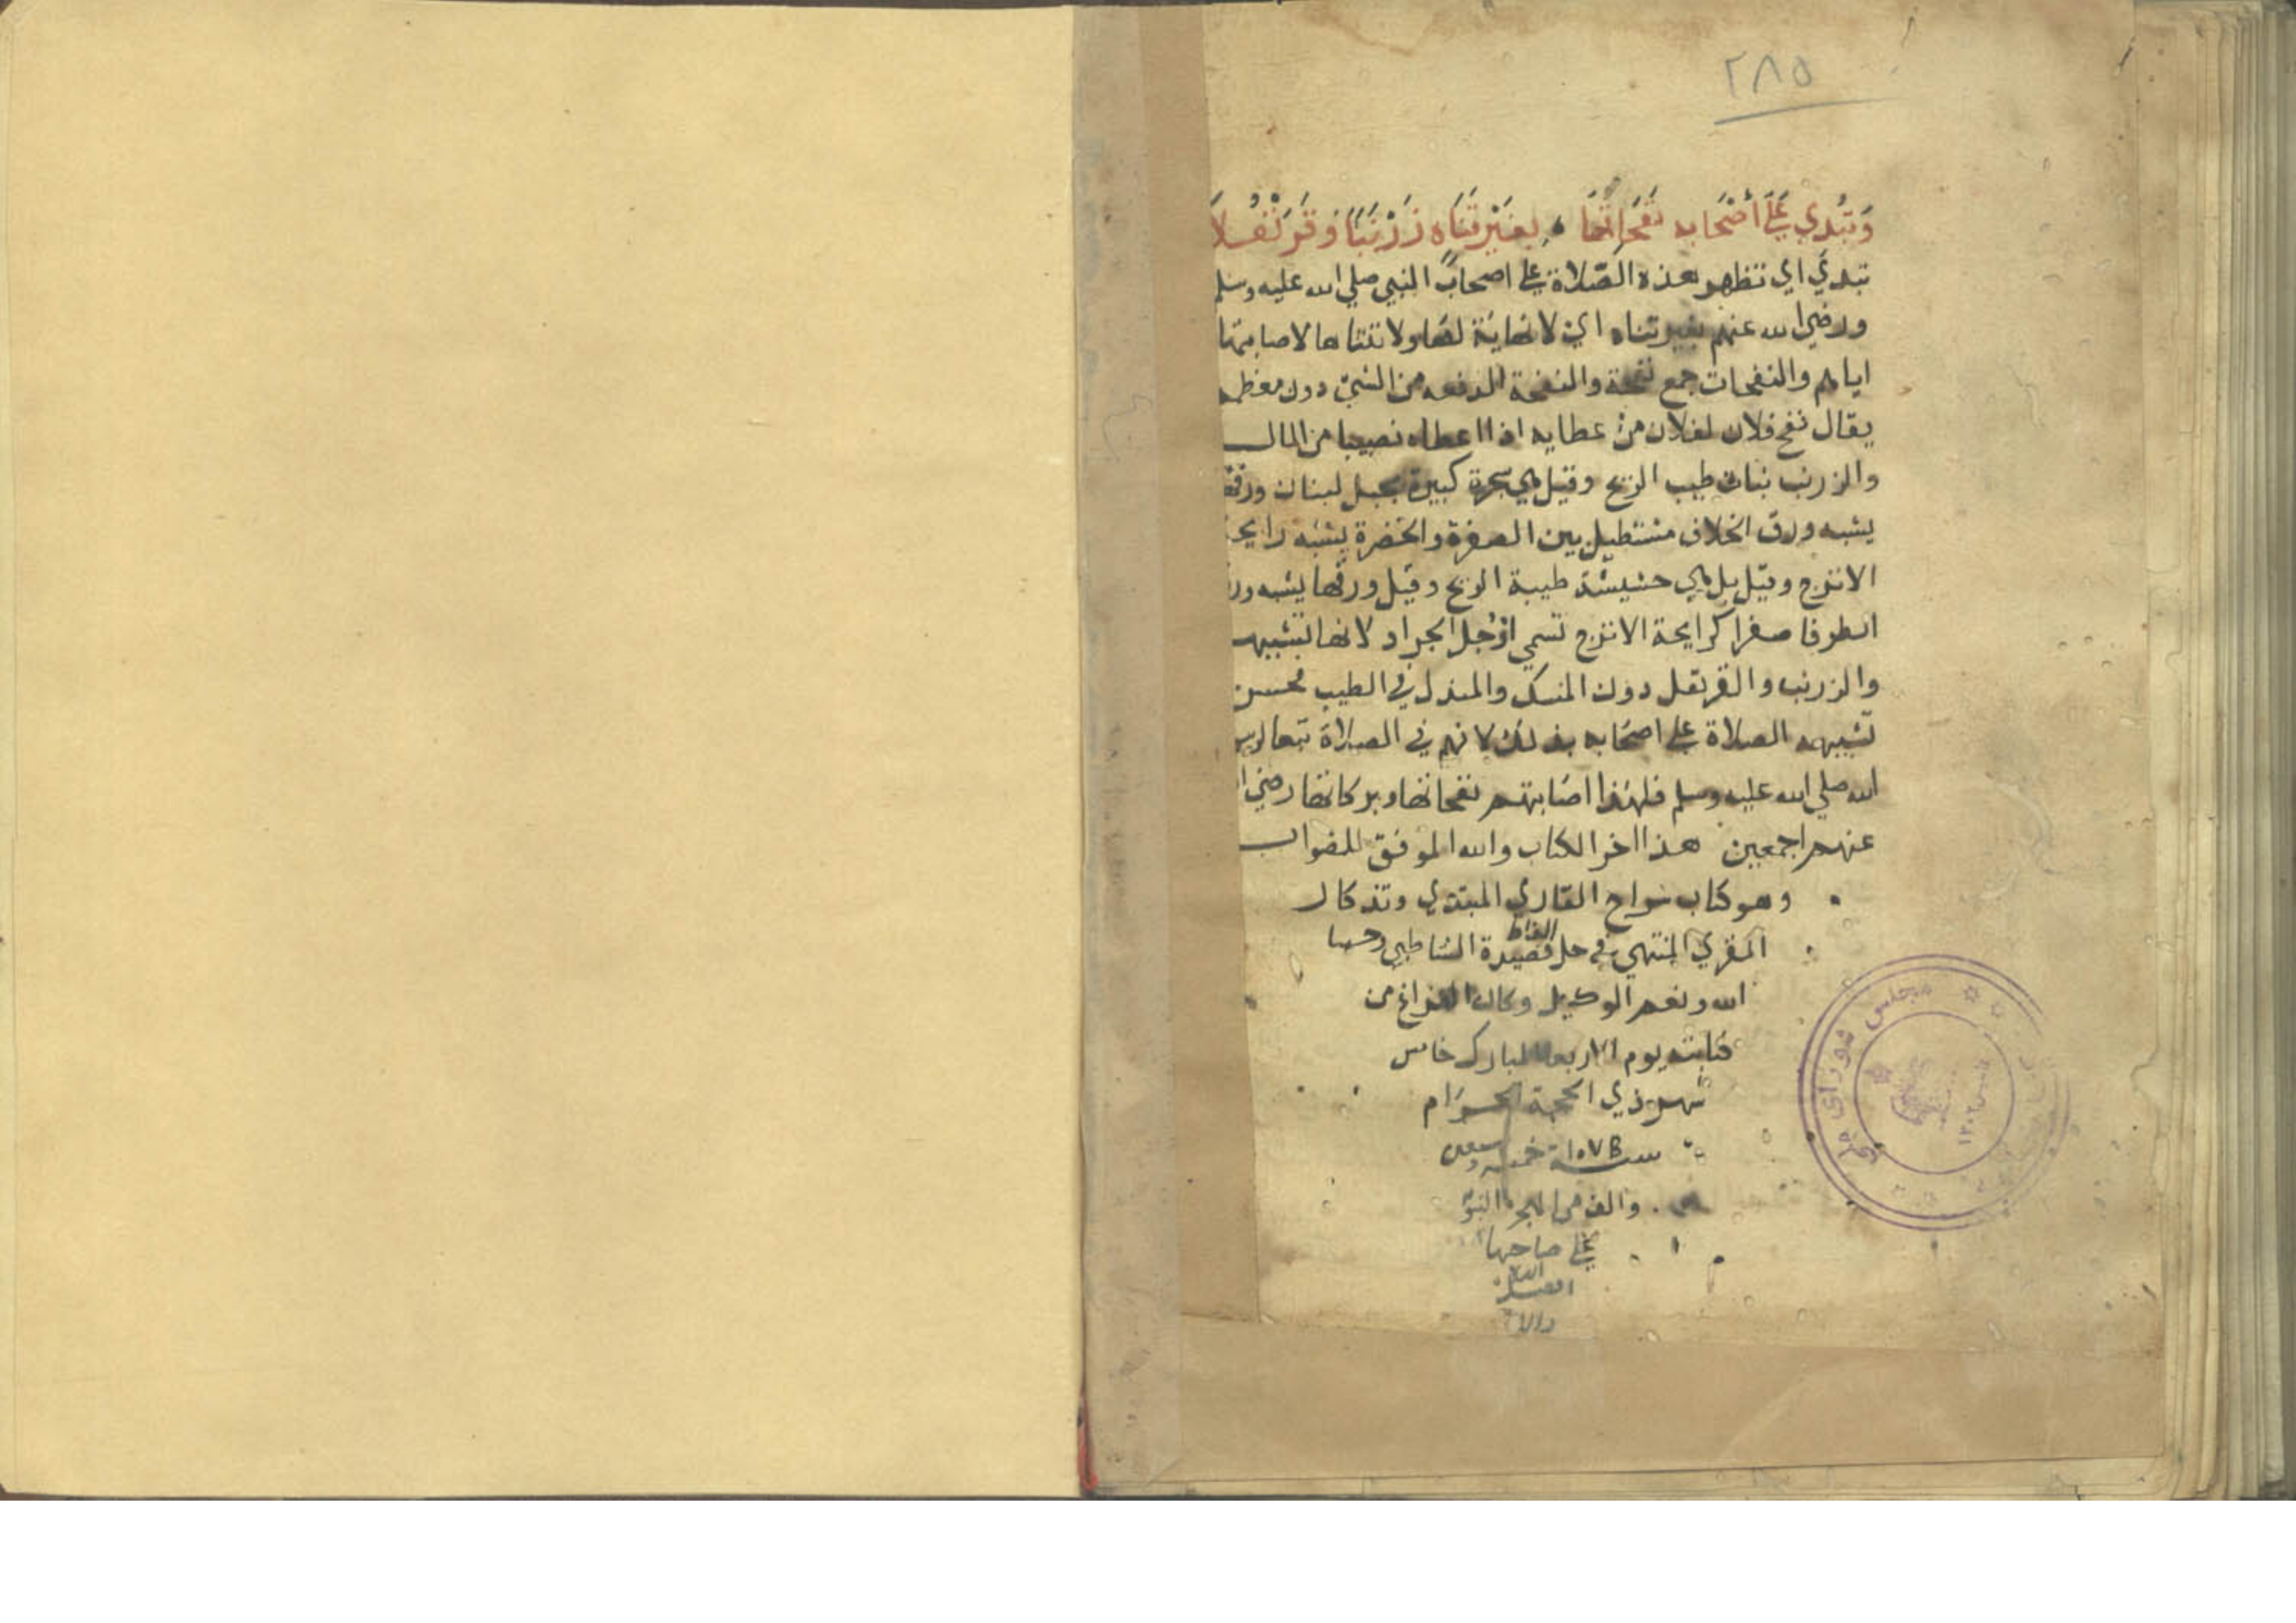 ٢٨٥
وَتُبْدِي عَلَى أَصْحَابِهِ نَفَحَاتُهَا بِغَيْرِ تَنَاهٍ زَرْنَبًا وَقَرَنْفُلَا
تبدي اي تظهر هذه الصلاة على اصحاب النبي صلي الله عليه وسلم
ورضي الله عنهم بغير تناه اي لا نهاية لها ولا تتناها لاصابتها
اياهم والنفحات جمع نفحة والنفحة الدفعه من الشيء دون معظمه
يقال نفح فلان لفلان من عطايه اذا اعطاه نصيبا من المال
والزرنب نبات طيب الريح وقيل هي شجرة كبيرة بجبل لبنان ورقها
يشبه ورق الخلاف مستطيل بين الصفرة والخضرة يشبه رايحة
الاترج وقيل بل هي حشيشة طيبة الريح وقيل ورقها يشبه ورق
الطرفا صفرا كرايحة الاترج تسمي ارْجُل الجراد لانها تشبهه
والزرنب والقرنفل دون المسك والمندل في الطيب فحسن
تشبيه الصلاة على اصحابه بذلك لانهم في الصلاة تبعا لرسول
الله صلي الله عليه وسلم فلهذا اصابتهم نفحاتها وبركاتها رضي الله
عنهم اجمعين هذا اخر الكتاب والله الموفق للصواب
وهو كتاب سراج القاري المبتدي وتذكار
المقري المنتهي في حل الفاظ قصيدة الشاطبي وحسبنا
الله ونعم الوكيل وكان الفراغ من
كتابته يوم الاربعا المبارك خامس
شهر ذي الحجة الحرام
سنة ١٠٧٥ خمسة وسبعين
والف من الهجرة النبوية
على صاحبها
الصلاة
مجلس شورای ملی